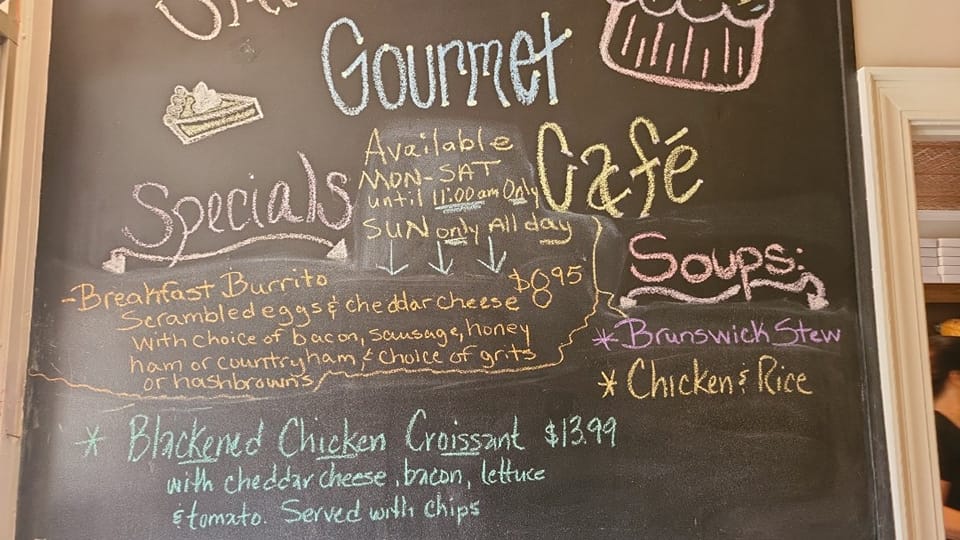 Gourmet
Café
Specials
Available
MON-SAT
until 11:00am Only
SUN only All day
-Breakfast Burrito $8.95
Scrambled eggs & cheddar cheese
with choice of bacon, sausage, honey
ham or country ham, & choice of grits
or hashbrowns
* Blackened Chicken Croissant $13.99
with cheddar cheese, bacon, lettuce
& tomato. Served with chips
Soups:
* Brunswick Stew
* Chicken & Rice